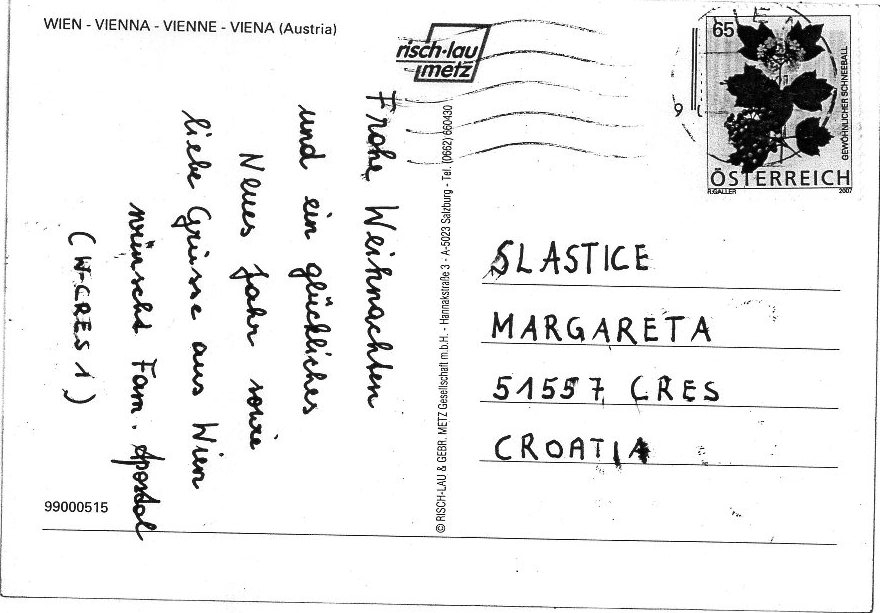 WIEN - VIENNA - VIENNE - VIENA (Austria)
risch-lau
metz
Frohe Weihnachten
und ein glückliches
Neues Jahr sowie
liebe Grüsse aus Wien
wünscht Fam. Apostol
(W-CRES 1)
99000515
© RISCH-LAU & GEBR. METZ Gesellschaft m.b.H. - Hannakstraße 3 - A-5023 Salzburg - Tel. (0662) 660430
65
GEWÖHNLICHER SCHNEEBALL
ÖSTERREICH
R.GALLER 2007
SLASTICE
MARGARETA
51557 CRES
CROATIA